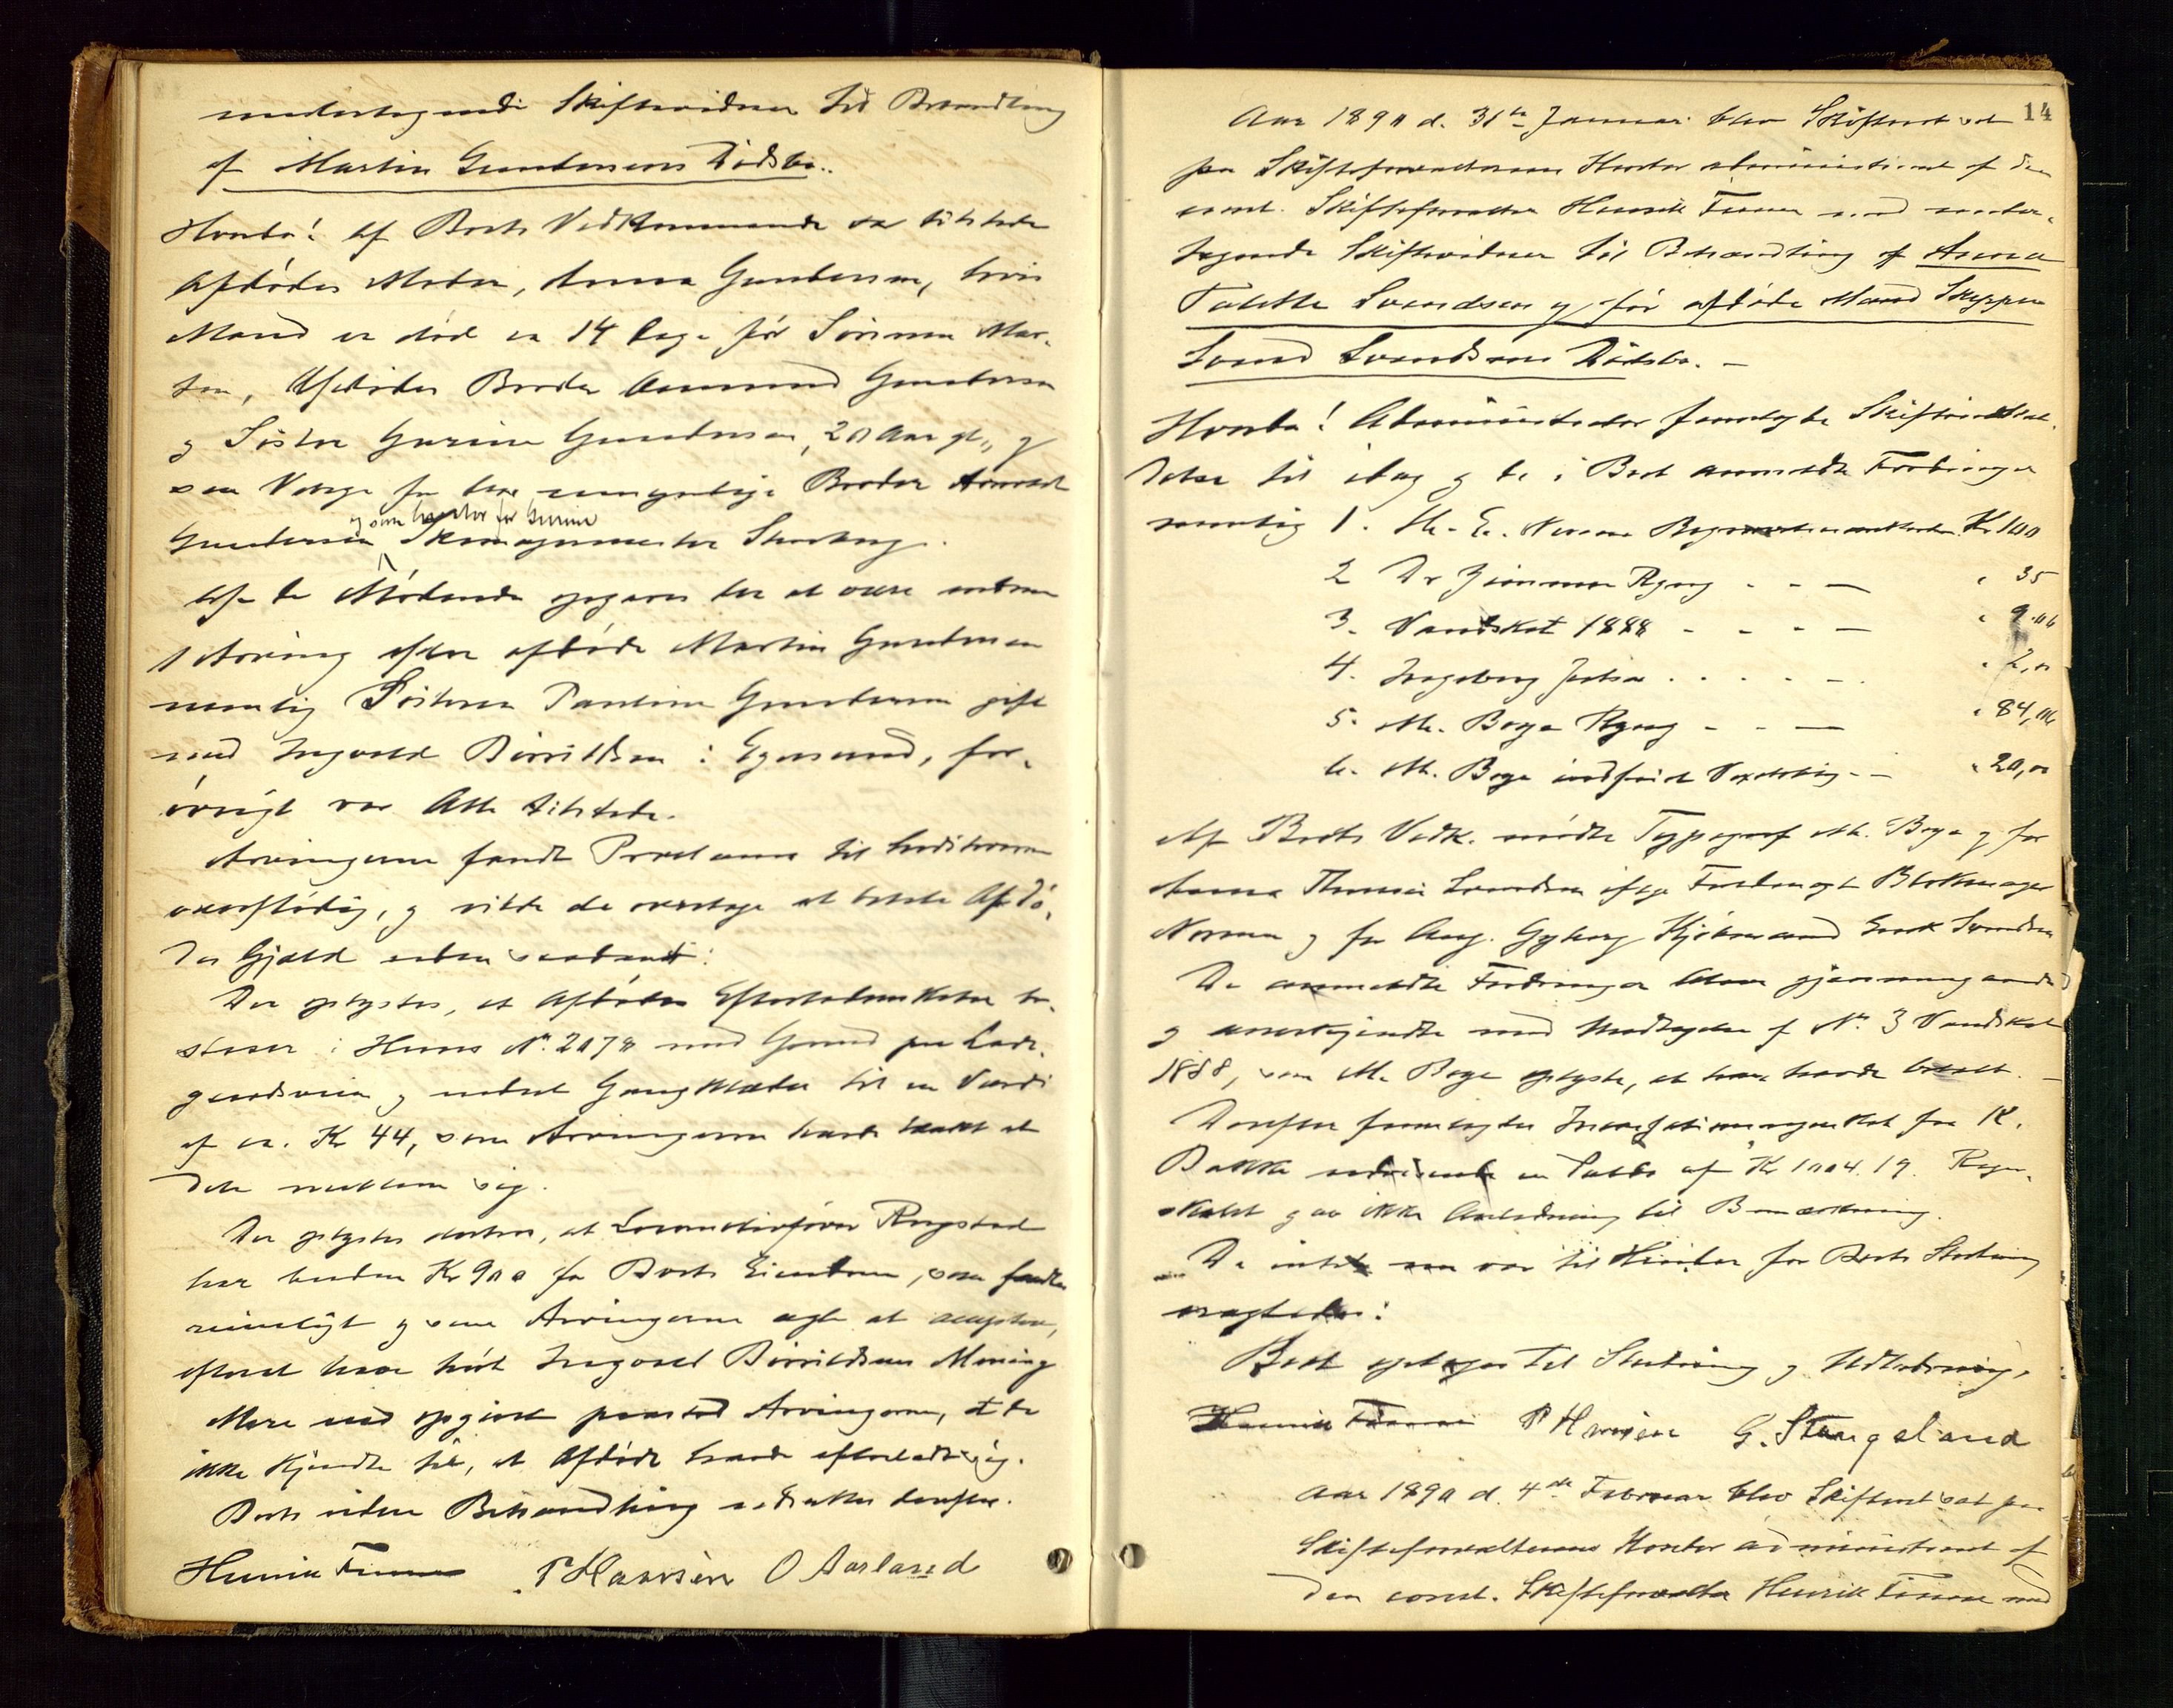 undertegnede Skiftevidner til Behandling
af Martin Gundersens Dødsbo.
Hvorda! Af Boets Vedkommende var tilstede
Afdødes Moder, Anna Gundersen, hvis
Mand er død ca 14 Dage før Sønnen Mar-
tin, Afdødes Broder Aanund Gundersen
g Søster Gurine Gundersen, 20 Aar gl., g
som Værge for den umyndige Broder
og som Curator for Gurine
Gundersen Skomagermester
Af de Mødende opgaves der at være endnu
1 Arving efter afdøde Martin Gundersen
nemlig Søsteren Pauline Gundersen gift
med Ingvald Børrildsen i Egersund, for-
øvrigt var Alle tilstede.
Arvingerne fandt Proclama til Creditorerne
overflødig, g vilde de overtage at betale Afdø-
des Gjæld uden saadant.
Der oplystes, at Afdødes Efterladenskaber be-
staar i Huus No. 2078 med Grund paa Lade-
gaardsveien g endel Gangklæder til en Værdi
af ca. Kr 44, som Arvingerne havde tænkt at
dele mellem sig.
Der oplystes derhos, at Locomotivfører Rugstad
har buden Kr 900 for Boets Eiendom, som fandtes
rimeligt g som Arvingerne agte at acceptere,
efterat have hørt Ingvald Børrildsens Mening
Mere end opgivet paastod Arvingerne, at de
ikke kjendte til, at Afdøde havde efterladt sig.
Boets videre Behandling udsattes derefter.
Henrik Finne P Hansen O Aarland
14
Aar 1890 d. 31te Januar blev Skifteret sat
paa Skifteforvalterens Kontor administreret af den
const. Skifteforvalter Henrik Finne med under-
tegnede Skiftevidner til Behandling af Anna
Talette Svendsen g før afdøde Mand Skipper
Svend Svendsens Dødsbo. —
Hvorda! Administrator fremlagde Skifteindkal-
delse til idag g de i Boet anmeldte Fordringer
nemlig 1. Kr. 100
2 Dr Zimmer Regning - - — " 35
3. Vandskat 1888 - - - — " 9.06
4. Ingeborg . . . . - -
5. M. Boye Regning - - — " 84,
6. M. Boye indfriet - — " 20,00
Af Boets Vedk. mødte Typograf M. Boye g for
Anna Svendsen ifølge Fuldmagt Blokmager
Norman g for Aug. Gyberg Kjøbmand Svendsen
De anmeldte Fordringer bleve gjennemgaaede
g anerkjendte med Undtagelse af No. 3 Vandskat
1888, som M. Boye oplyste, at han havde betalt. —
Derefter fremlagdes fra K.
Bakke udvisende en Saldo af Kr 1004.19. Regn-
skabet gav ikke Anledning til Bemærkning.
Da intet var til Hinder for Boets Slutning
vragtedes:
Boet optages til Slutning g Udlodning.
Henrik Finne P Hansen G. Stangeland
Aar 1890 d. 4de Februar blev Skifteret sat paa
Skifteforvalterens Kontor administreret af
den const. Skifteforvalter Henrik Finne med